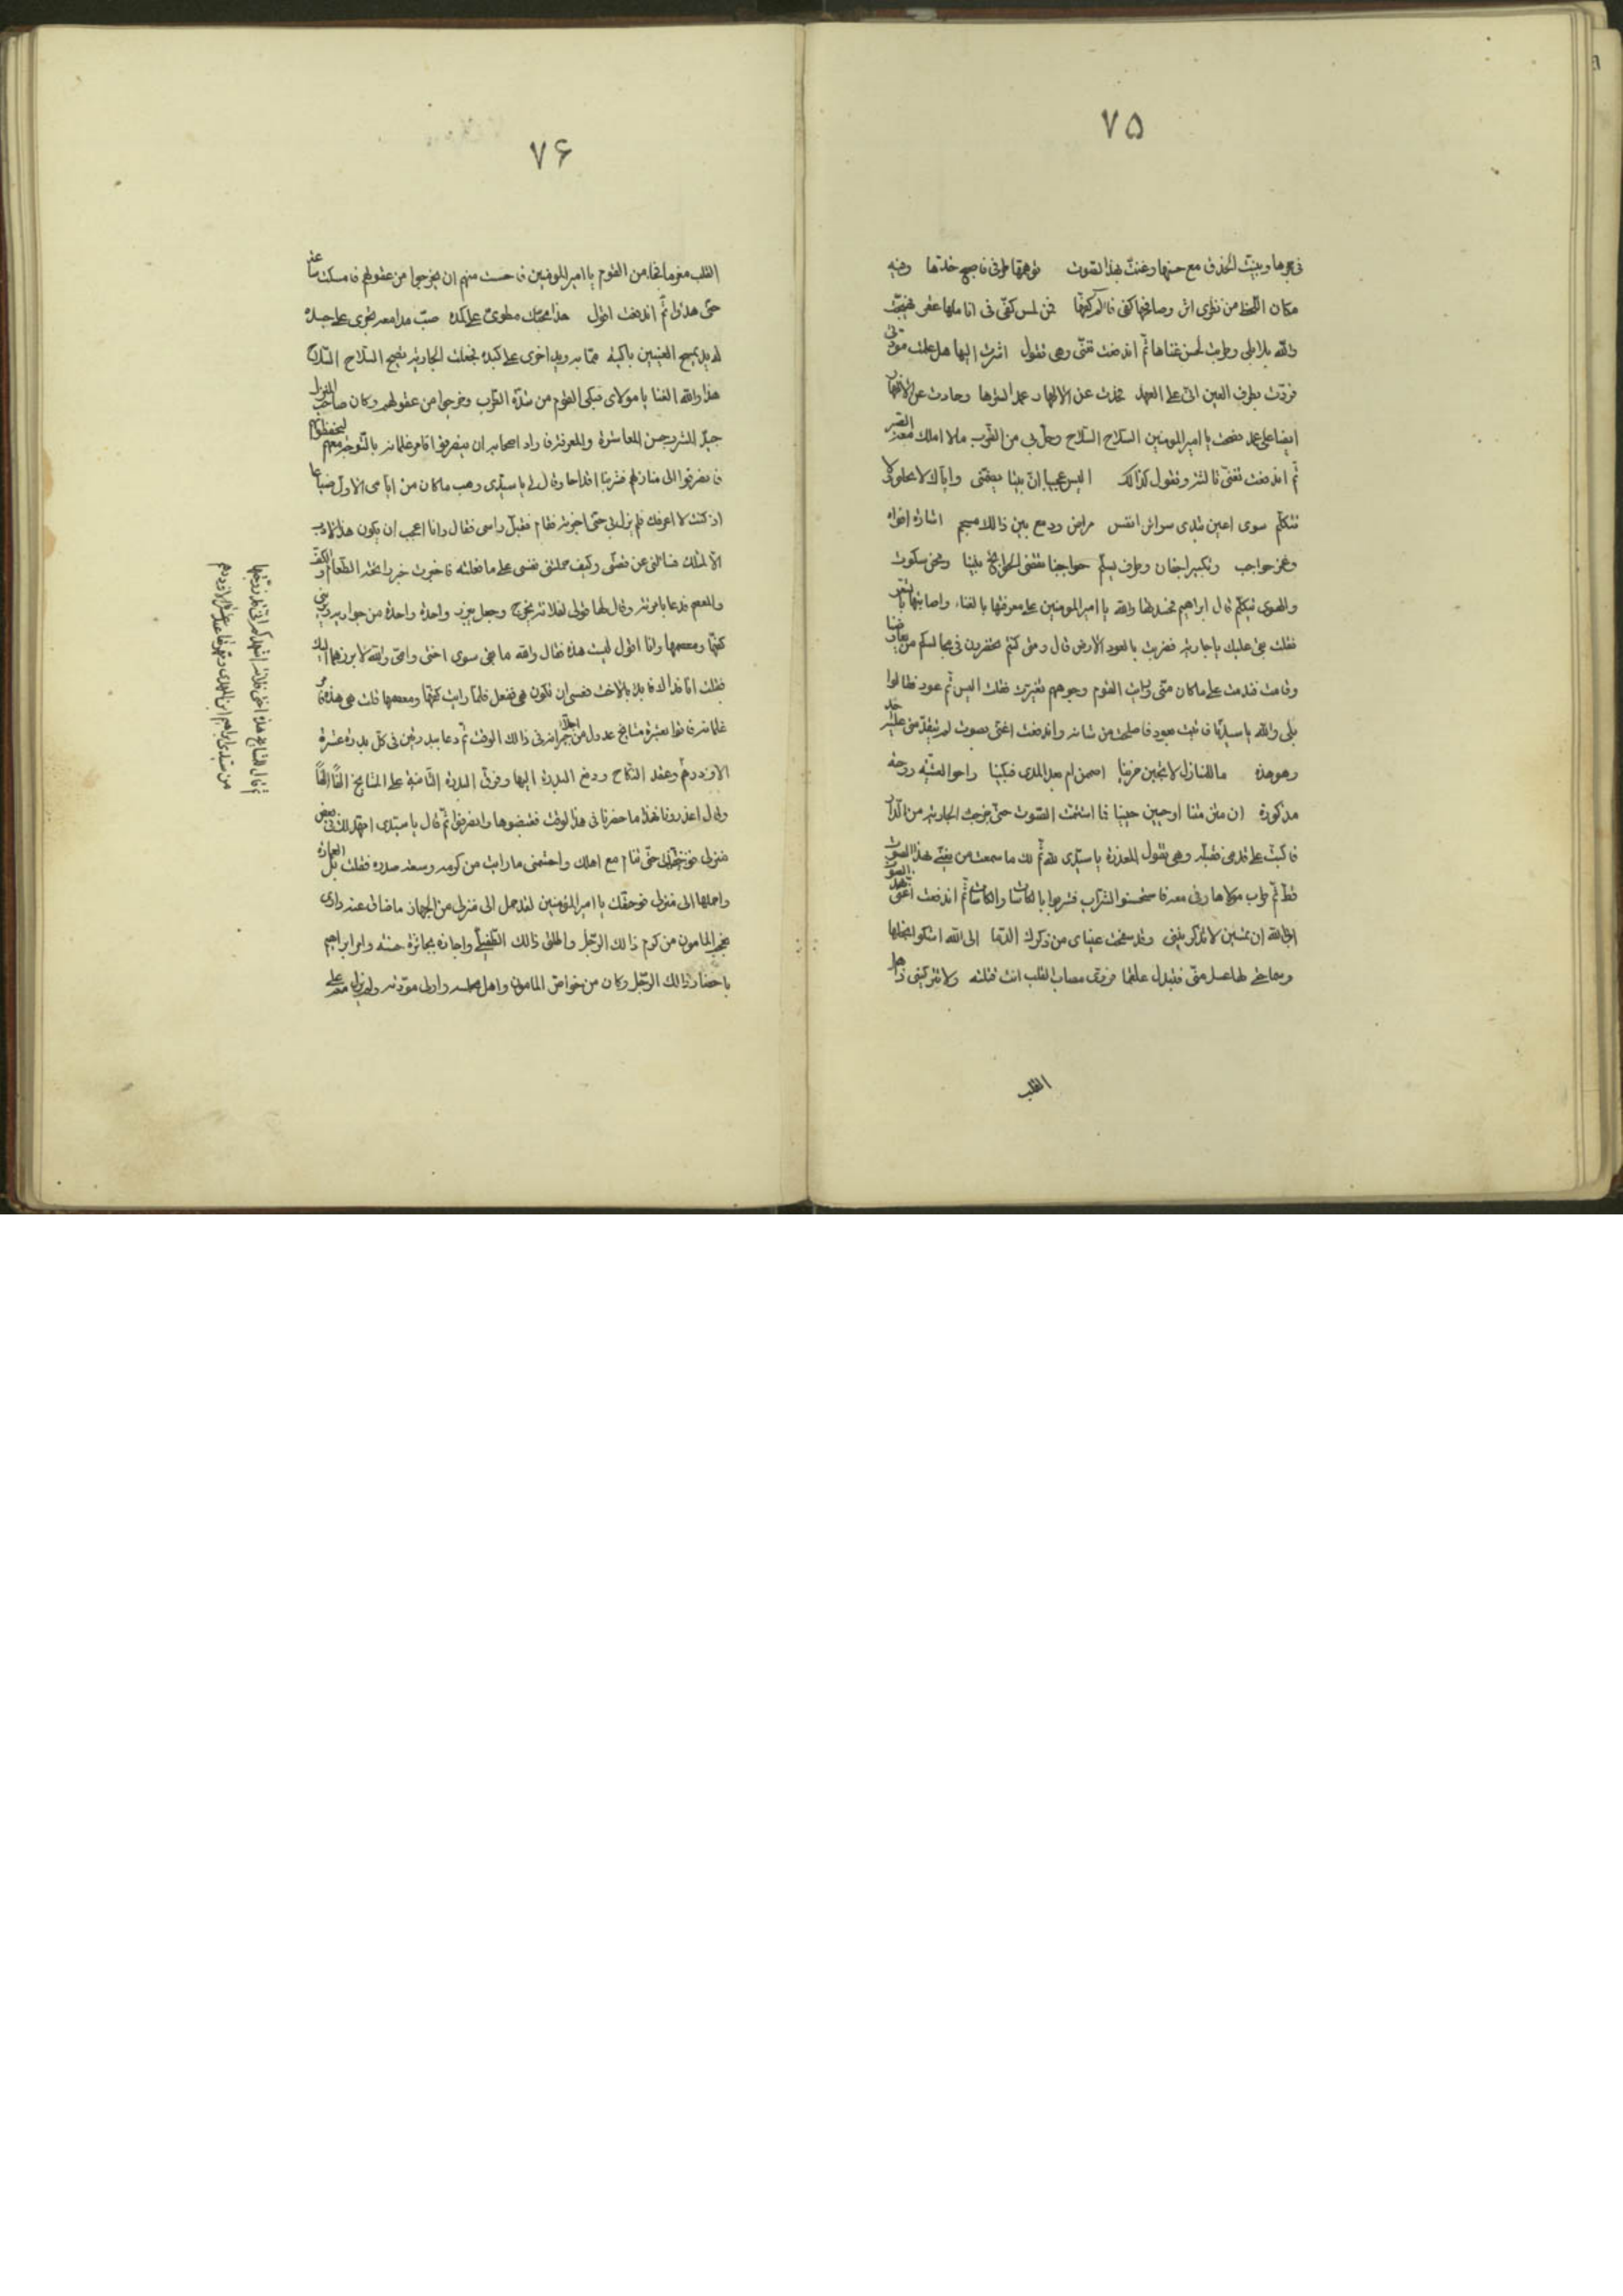 ٧۵
فى حجرها وبينت الحذق مع حسنها وغنت بهذا الصوت توهمها طرفى فاصبح خدها وفيه
مكان اللحظ من نظرى اثر وصافحها كفى فآلم كفها فمن لمس كفى فى اناملها عقر فهيجت
والله بلابلى وطربت لحسن غناها ثم اندفعت تغنى وهى تقول اشرت اليها هل علمت مودتى
فردت بطرف العين انى على العهد فحدت عن الاظهار عمدا لسرها وحادت عن الاظهار
ايضا على عمد فصحت يا امير المومنين السلاح السلاح وحل بى من الطرب ما لا املك معه الصبر
ثم اندفعت تغنى ثالثة وتقول كذالك اليس عجيبا ان بيتا يضمنى واياك لا نخلو ولا
نتكلم سوى اعين تبدى سرائر انفس ودمع بين ذالك مسجم اشارة افواه
وغمز حواجب وتكسير اجفان وطرف يسلم حواجبنا تقضى الحوائج بيننا ونحن سكوت
والهوى يتكلم قال ابراهيم فحسدتها والله يا امير المومنين على معرفتها بالغناء واصابتها
فقلت بقى عليك يا جارية فضربت بالعود الارض قال ومتى كنتم تحضرون فى مجالسكم
وقامت فندمت على ما كان منى ورايت القوم وجوههم تغيرت فقلت اليس ثم عود فقالوا
بلى والله يا سيدنا فاتيت بعود فاصلحت من شانه واندفعت اغنى بصوت لم
وهو هذه ما للمنازل لا يجبن حزينا اصممن ام بعد المدى فبلينا راحوا العشية روحة
مذكورة ان متن متنا او حيين حيينا فما استتمت الصوت حتى خرجت الجارية من الدار
فاكبت على قدمى فقبله وهى تقول المعذرة يا سيدى ما سمعت من يغنى هذا الصوت
قط ثم طرب مولاها ومن معه فاستحسنوا الشراب فشربوا بالكاسات والكاسات ثم اندفعت اغنى
افى الله ان تمشين لا تذكريننى وقد سفحت عيناى من ذكرك الدما الى الله اشكوا بخلها
وسماحتى لها عسل منى وتبذل علقما فردى مصاب القلب انت قتلته ولا تتركينى
القلب
٧۶
القلب مغرما فجاء من القوم يا امير المومنين ما خشيت منهم ان يخرجوا من عقولهم فامسكت ساعة
حتى هدوا ثم اندفعت اقول هذا محبك مطوى على كمده صب مدامعه تجرى على جسده
له يد تمسح العينين باكية مما به ويد اخرى على كبده فجعلت الجارية تصيح السلاح السلاح
هذا والله الغنا يا مولاى فبكى القوم من شدة الطرب وخرجوا من عقولهم وكان صاحب المنزل
جيد الشرب حسن المعاشرة والمعرفة واراد اصحابه ان ينصرفوا فامر غلمانه بالتوجه معهم ليحفظوهم
فانصرفوا الى منازلهم فشربنا اقداحا وقال لى يا سيدى وهب ما كان من ايامى الاول ضياعا
اذ كنت لا اعرفك فلم يزل بى حتى اخبرته فقام فقبل راسى فقال وانا اعجب ان يكون هذا الادب
الا لمثلك فسالنى عن قصتى وكيف حملتنى نفسى على ما فعلته فاخبرت خبر الطعام والكف
والمعصم فدعا بامرته وقال لها قولى لفلانة تخرج وجعل ينزل واحدة واحدة من جواريه ويرينى
كفها ومعصمها وانا اقول ليست هذه فقال والله ما بقى سوى اختى وامى والله لابرزهما اليك
فقلت انا فداك فابدا بالاخت فعسى ان تكون هى ففعل فلما رايت كفها ومعصمها قلت هى هذه فامر
غلمانه فاتوا بعشرة مشايخ عدول من اجلة جيرانه فى ذالك الوقت ثم دعا ببدرتين فى كل بدرة عشرة
الاف درهم وعقد النكاح ودفع البدرة اليها وفرق البدرة الثانية على المشايخ الفًا الفًا
وقال اعذرونا فهذا ما حضرنا فى هذا لوقت فقبضوها وانصرفوا ثم قال يا سيدى امهد لك فى بعض
منزلى حتى تنام مع اهلك واحتشمنى ما رايت من كرمه وسعة صدره فقلت بل
واحملها الى منزلى فوحقك يا امير المؤمنين لقد حمل الى منزلى من الجهاز ما ضاق عنه دارى
فعجب المامون من كرم ذالك الرجل واطلق ذالك الطفيلى واجازه بجائزة حسنة وامر ابراهيم
باحضار ذالك الرجل وكان من خواص المامون واهل مجلسه واهل مودته ولم يزل معه على
ثم قال للمشايخ هذه اختى فلانة اشهدكم انى قد زوجتها
من سيدى ابراهيم ابن المهدى ومهرتها عنه عشرة الاف درهم